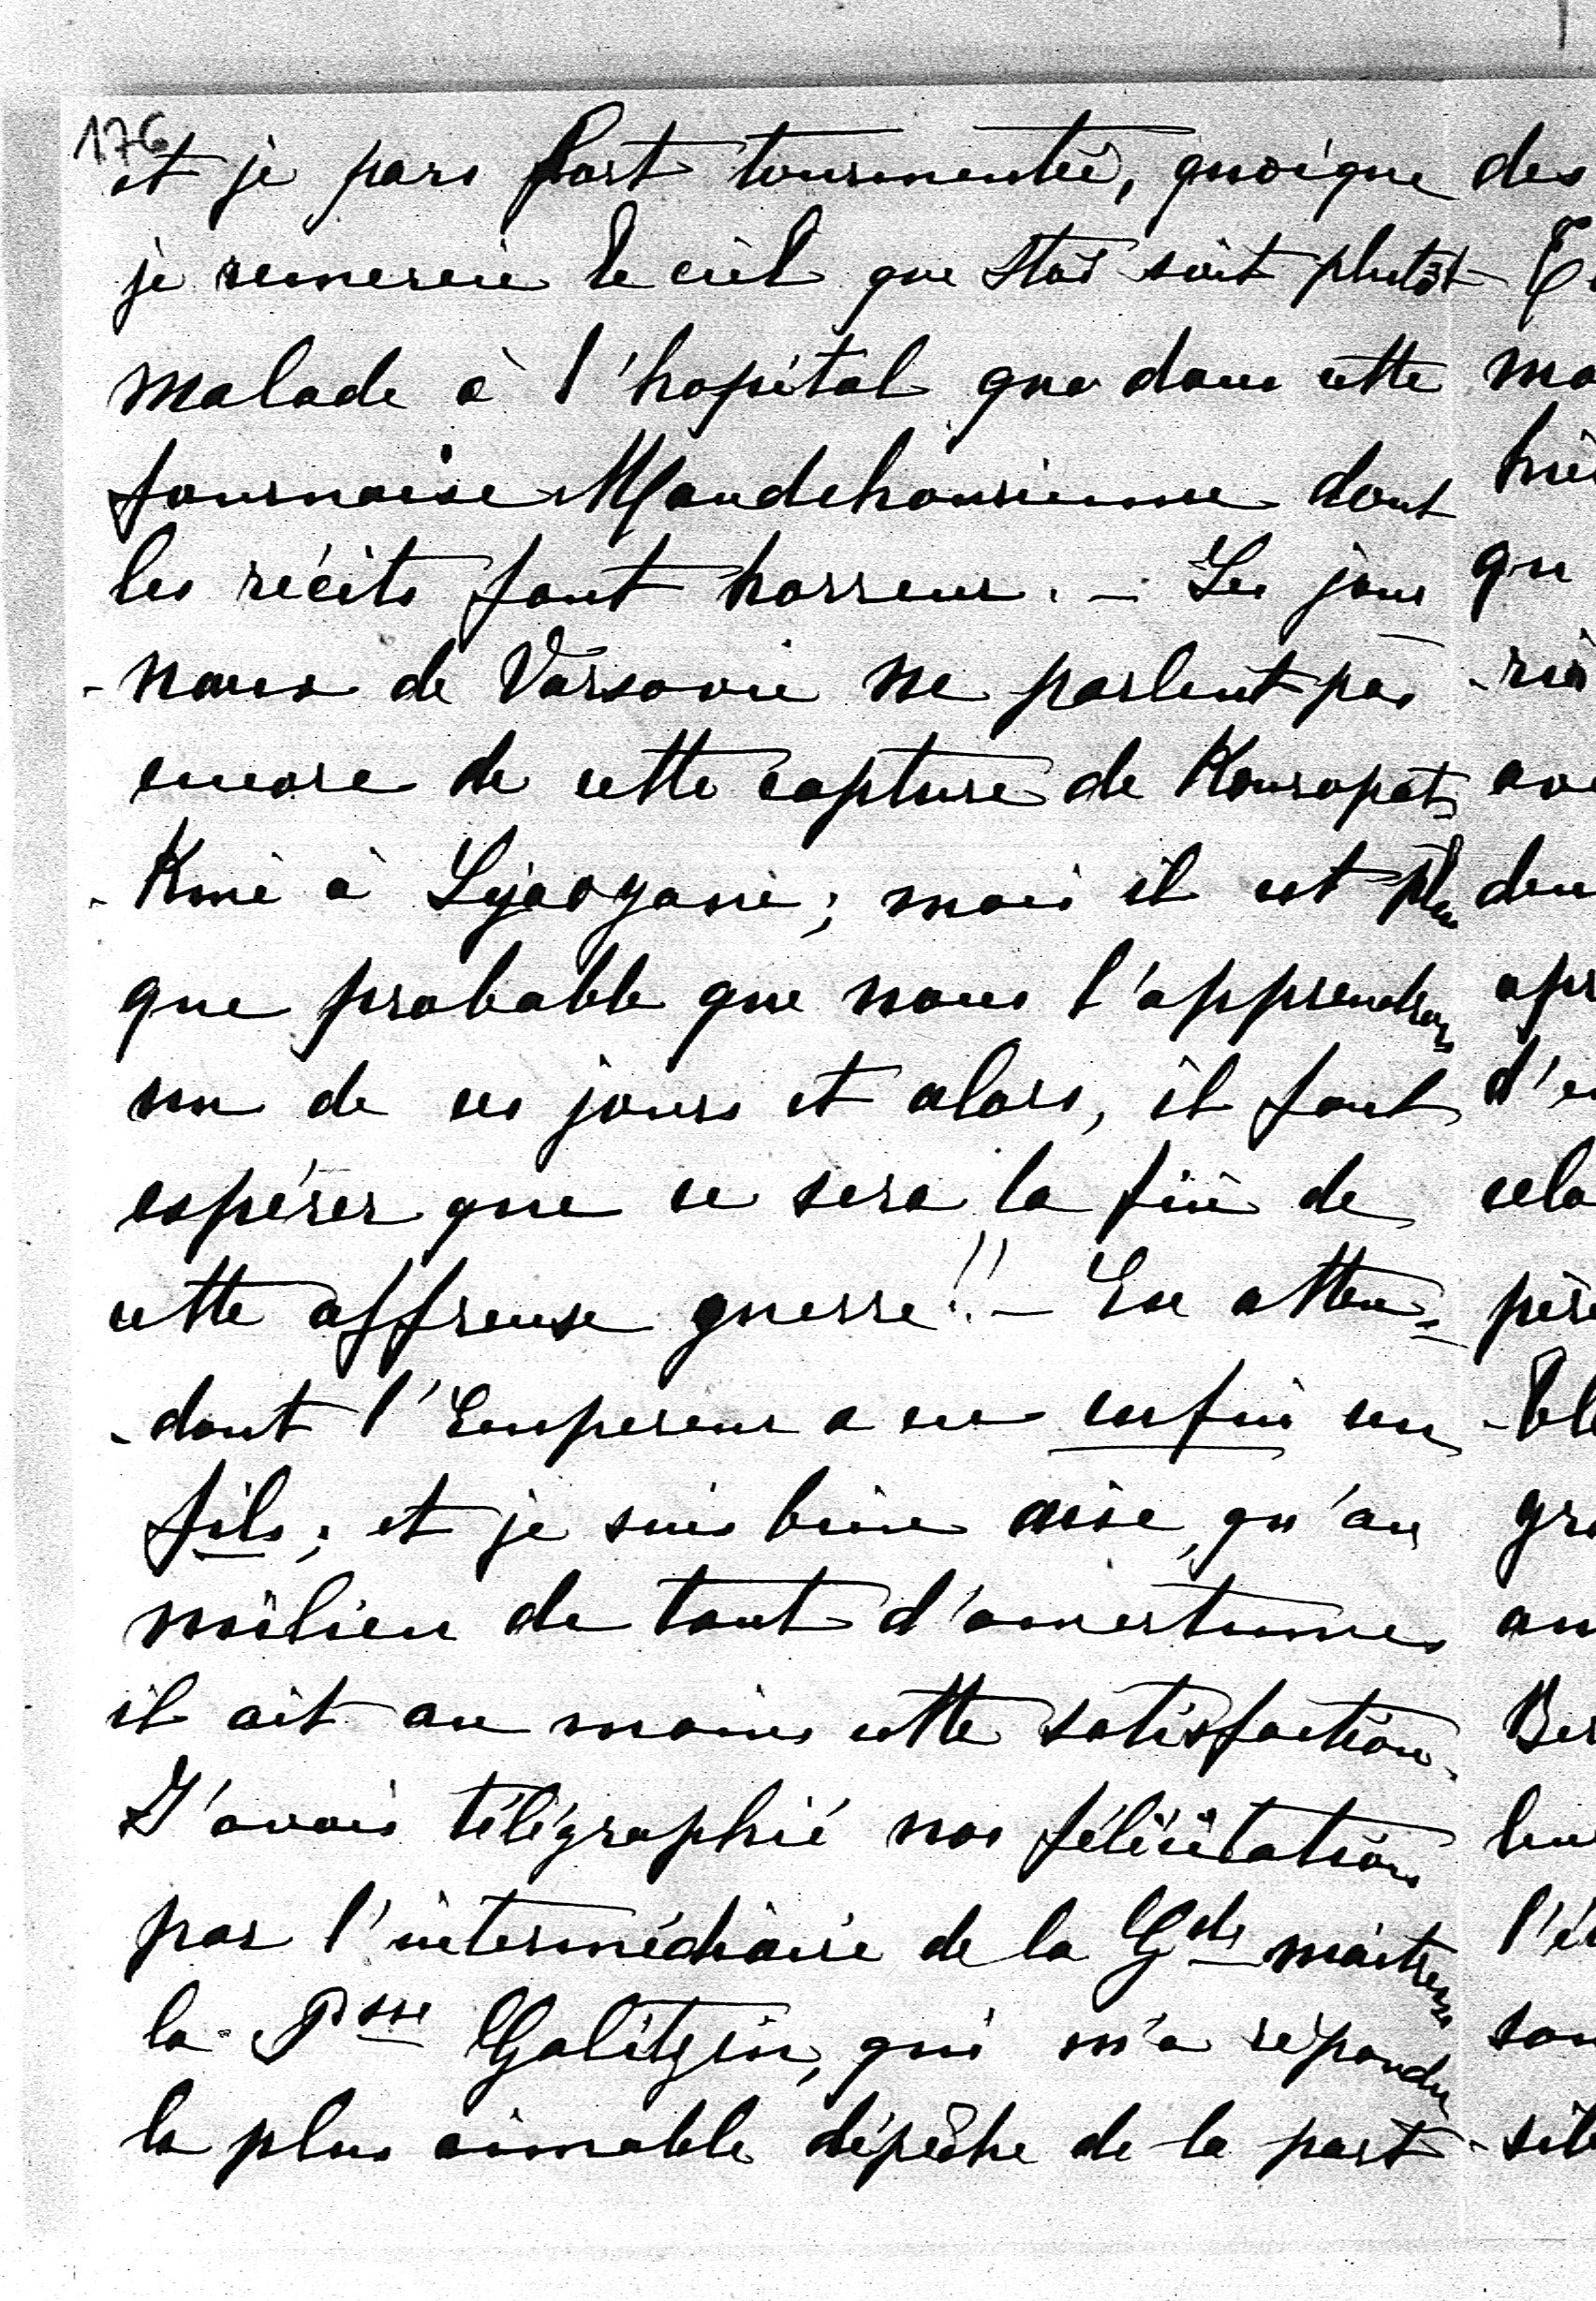 176
et je pars fort tourmentée, quoique
je remercie le ciel que Stas soit plutôt
malade à l'hopital que dans cette
fournaise Mandchourienne dont
les récits font horreur. – Les jour
-naux de Varsovie ne parlent pas
encore de cette capture de Kouropat
-kine à Lyaoyane; mais il est plus
que probable que nous l'apprendrons
un de ces jours et alors, il faut
espérer que ce sera la fin de
cette affreuse guerre!! – En atten-
-dant l'Empereur a eu enfin un
fils; et je suis bien aise, qu'au
milieu de tant d'amertumes
il ait au moins cette satisfaction.
J'avais télégraphié nos félicitations
par l'intermédiaire de la Gde maitresse
la Psse Galitzin, qui m'a répondu
la plus aimable dépêche de la part
des
mo
qu
-riè
ave
deu
apr
d'e
cela
père
-bl
gr
au
Ber
leu
l'é
son
-sit